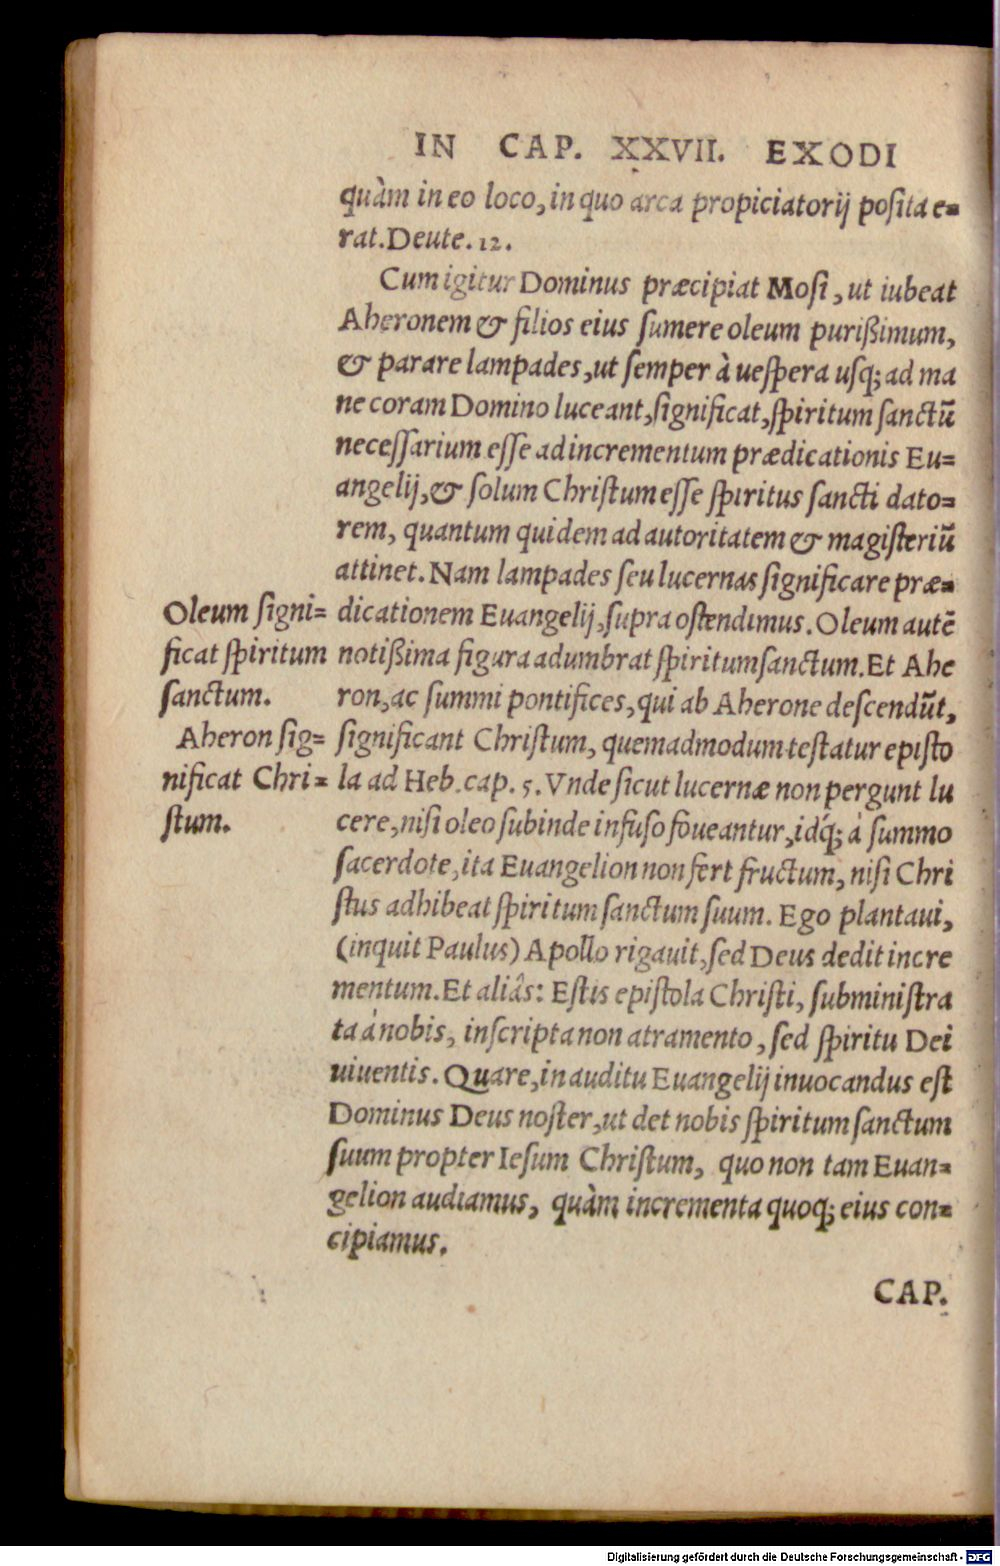 IN CAP. XXVII. EXODI
quàm in eo loco, in quo arca propiciatorij posita e-
rat. Deute. 12.
Cum igitur Dominus præcipiat Mosi, ut iubeat
Aheronem & filios eius sumere oleum purißimum,
& parare lampades, ut semper à uespera usq; ad ma
ne coram Domino luceant, significat, spiritum sanctū
necessarium esse ad incrementum prædicationis Eu-
angelij, & solum Christum esse spiritus sancti dato-
rem, quantum quidem ad autoritatem & magisteriū
attinet. Nam lampades seu lucernas significare præ-
dicationem Euangelij, supra ostendimus. Oleum autē
notißima figura adumbrat spiritum sanctum. Et Ahe
ron, ac summi pontifices, qui ab Aherone descendūt,
significant Christum, quemadmodum testatur episto
la ad Heb. cap. 5. Vnde sicut lucernæ non pergunt lu
cere, nisi oleo subinde infuso foueantur, idq́; à summo
sacerdote, ita Euangelion non fert fructum, nisi Chri
stus adhibeat spiritum sanctum suum. Ego plantaui,
(inquit Paulus) Apollo rigauit, sed Deus dedit incre
mentum. Et aliâs: Estis epistola Christi, subministra
ta à nobis, inscripta non atramento, sed spiritu Dei
uiuentis. Quare, in auditu Euangelij inuocandus est
Dominus Deus noster, ut det nobis spiritum sanctum
suum propter Iesum Christum, quo non tam Euan-
gelion audiamus, quàm incrementa quoq; eius con-
cipiamus.
Oleum signi-
ficat spiritum
sanctum.
Aheron sig-
nificat Chri-
stum.
CAP.
Digitalisierung gefördert durch die Deutsche Forschungsgemeinschaft - DFG